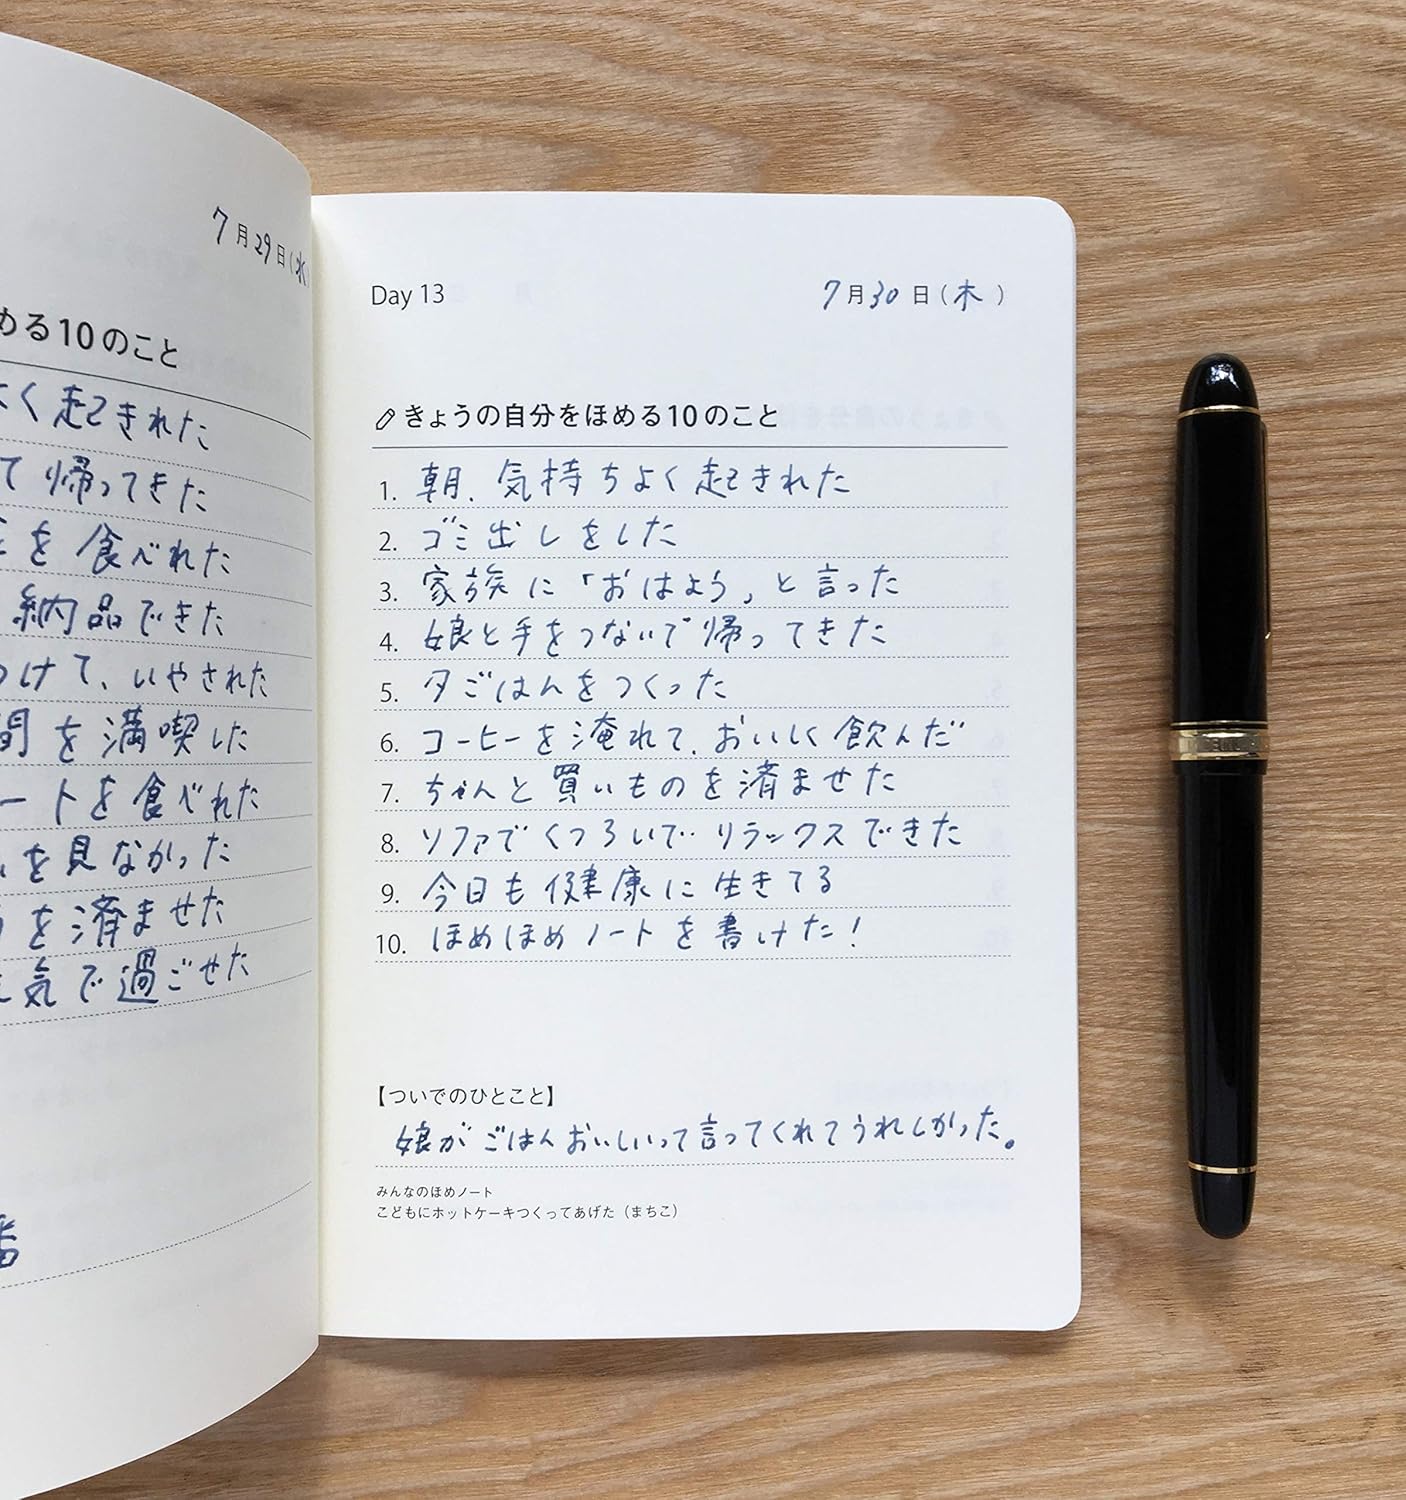 7月29日(水)
める10のこと
よく起きれた
て帰ってきた
を食べれた
納品できた
つけて、いやされた
間を満喫した
ートを食べれた
を見なかった
を済ませた
気で過ごせた
番
Day 13
7月30日(木)
きょうの自分をほめる10のこと
1. 朝、気持ちよく起きれた
2. ゴミ出しをした
3. 家族に「おはよう」と言った
4. 娘と手をつないで帰ってきた
5. 夕ごはんをつくった
6. コーヒーを淹れて、おいしく飲んだ
7. ちゃんと買いものを済ませた
8. ソファでくつろいで リラックスできた
9. 今日も健康に生きてる
10. ほめほめノートを書けた!
【ついでのひとこと】
娘がごはんおいしいって言ってくれてうれしかった。
みんなのほめノート
こどもにホットケーキつくってあげた(まちこ)